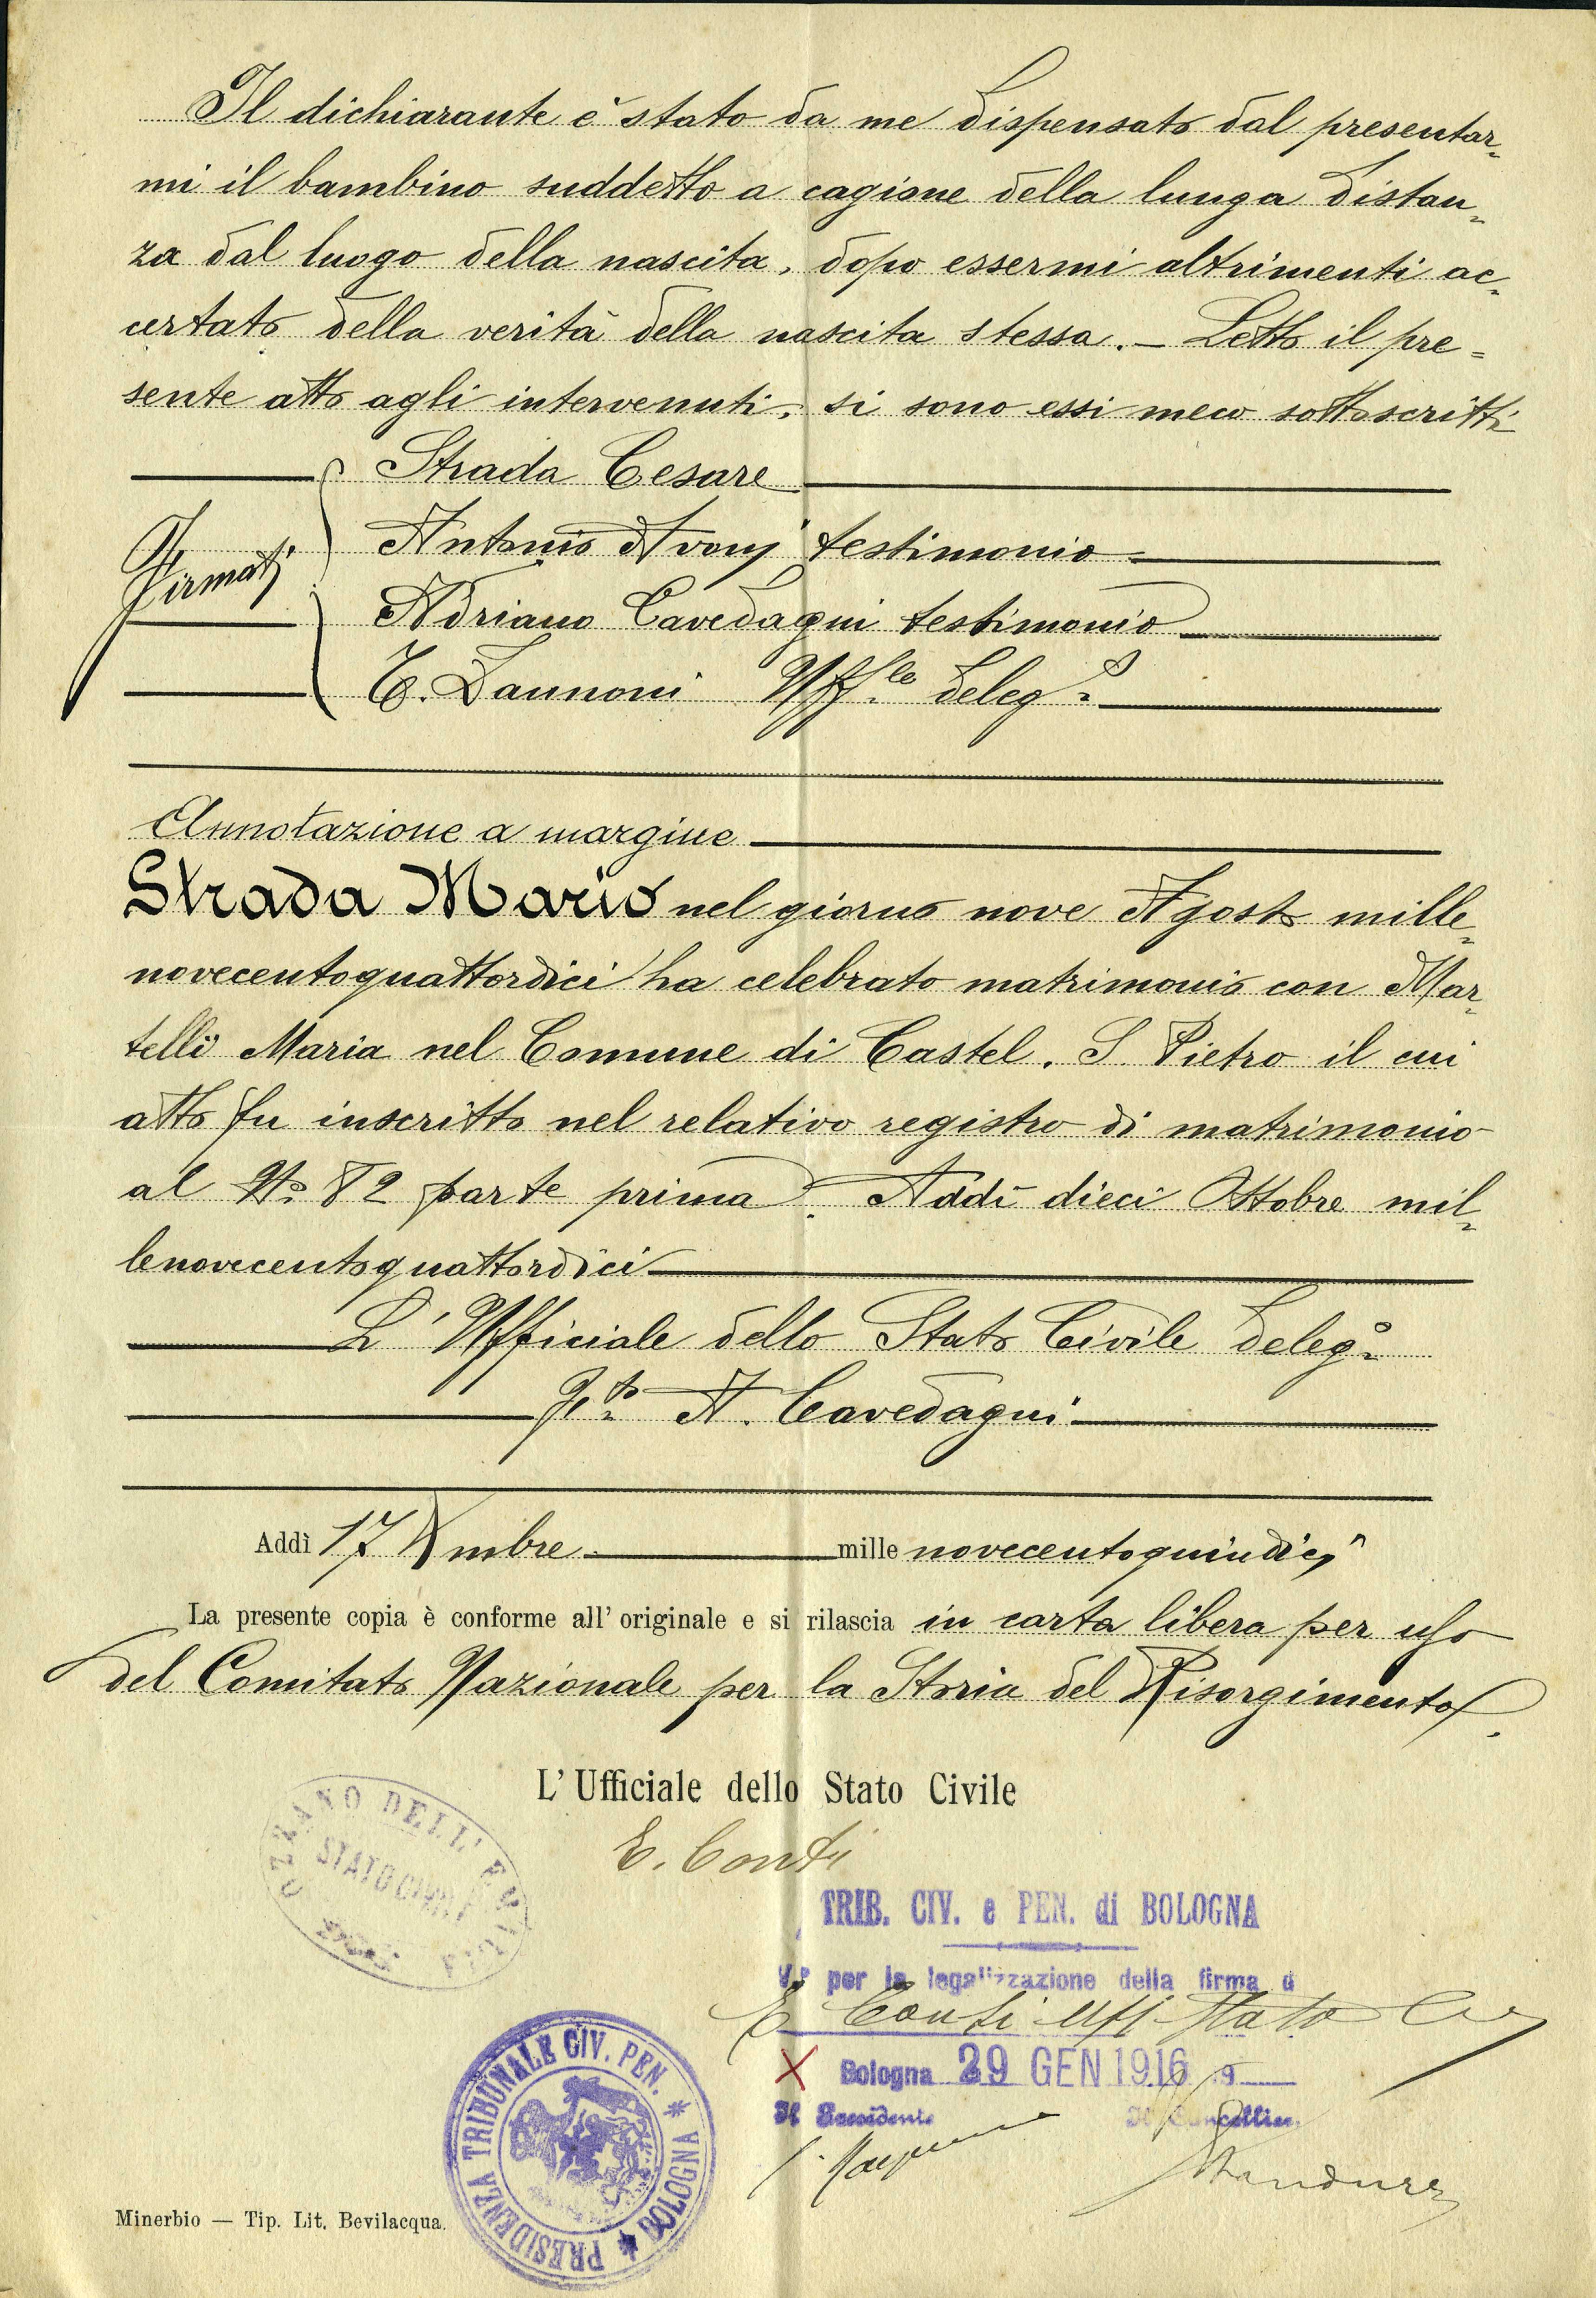 Il dichiarante è stato da me dispensato dal presentar=
mi il bambino suddetto a cagione della lunga distan=
za dal luogo della nascita, dopo essermi altrimenti ac=
certato della verità della nascita stessa. — Letto il pre=
sente atto agli intervenuti, si sono essi meco sottoscritti
Firmati
Strada Cesare
Antonio Avonj testimonio
Adriano Cavedagni testimonio
E. Zannoni Uff.le deleg.o
Annotazione a margine
Strada Mario nel giorno nove Agosto mille=
novecentoquattordici ha celebrato matrimonio con Mar=
telli Maria nel Comune di Castel. S. Pietro il cui
atto fu inscritto nel relativo registro di matrimonio
al N.o 82 parte prima. Addì dieci Ottobre mil=
lenovecentoquattordici
L'Ufficiale dello Stato Civile deleg.o
F.to A. Cavedagni
Addì 17 Xmbre mille novecentoquindicj
La presente copia è conforme all'originale e si rilascia in carta libera per uso
del Comitato Nazionale per la Storia del Risorgimento.
L'Ufficiale dello Stato Civile
E. Conti
OZZANO DELL'EMILIA
STATO CIVILE
TRIB. CIV. e PEN. di BOLOGNA
V.o per la legalizzazione della firma d
E Conti uff Stato Civ
Bologna 29 GEN 1916 9
Il Presidente Il Cancellier
PRESIDENZA TRIBUNALE CIV. PEN. * BOLOGNA *
Minerbio — Tip. Lit. Bevilacqua.